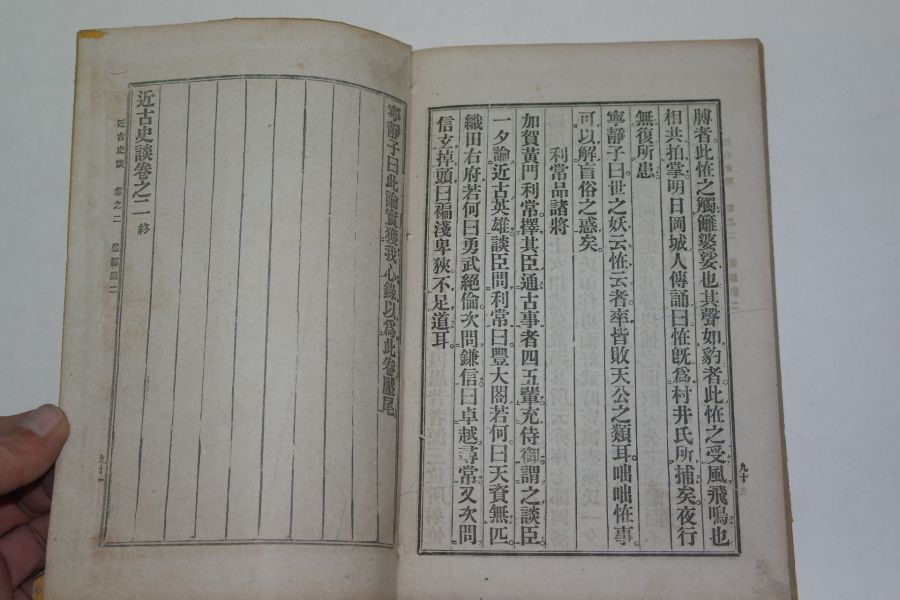 膊者。此恠之觸籬婆娑也其聲如豹者。此恠之受風飛鳴也
相共拍掌明日岡城人傳誦曰恠既爲村井氏所捕矣。夜行
無復所患
寧靜子曰世之妖云恠云者。率皆敗天公之類耳。咄咄恠事。
可以解盲俗之惑矣。
利常品諸將
加賀黃門利常。擇其臣通古事者四五輩。充侍御。謂之談臣。
一夕論近古英雄談臣問利常曰豐太閤若何曰天資無匹
織田右府若何曰勇武絕倫。次問鎌信曰卓越尋常又次問
信玄掉頭曰褊淺卑狹。不足道耳。
九十
寧靜子曰此論實獲我心錄以爲此卷壓尾
近古史談卷之二 終
近古史談 卷之二
九十一